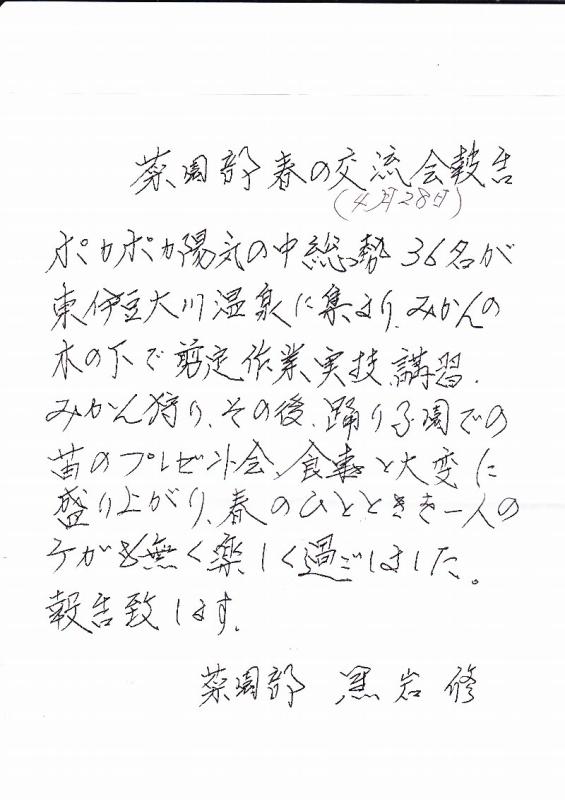 菜園部春の交流会報告
(4月28日)
ポカポカ陽気の中総勢36名が
東伊豆大川温泉に集まり、みかんの
木の下で剪定作業実技講習、
みかん狩り、その後、踊り子園での
苗のプレゼント会、食事と大変に
盛り上がり、春のひとときを一人の
ケガも無く楽しく過ごしました。
報告致します。
菜園部 黒岩修